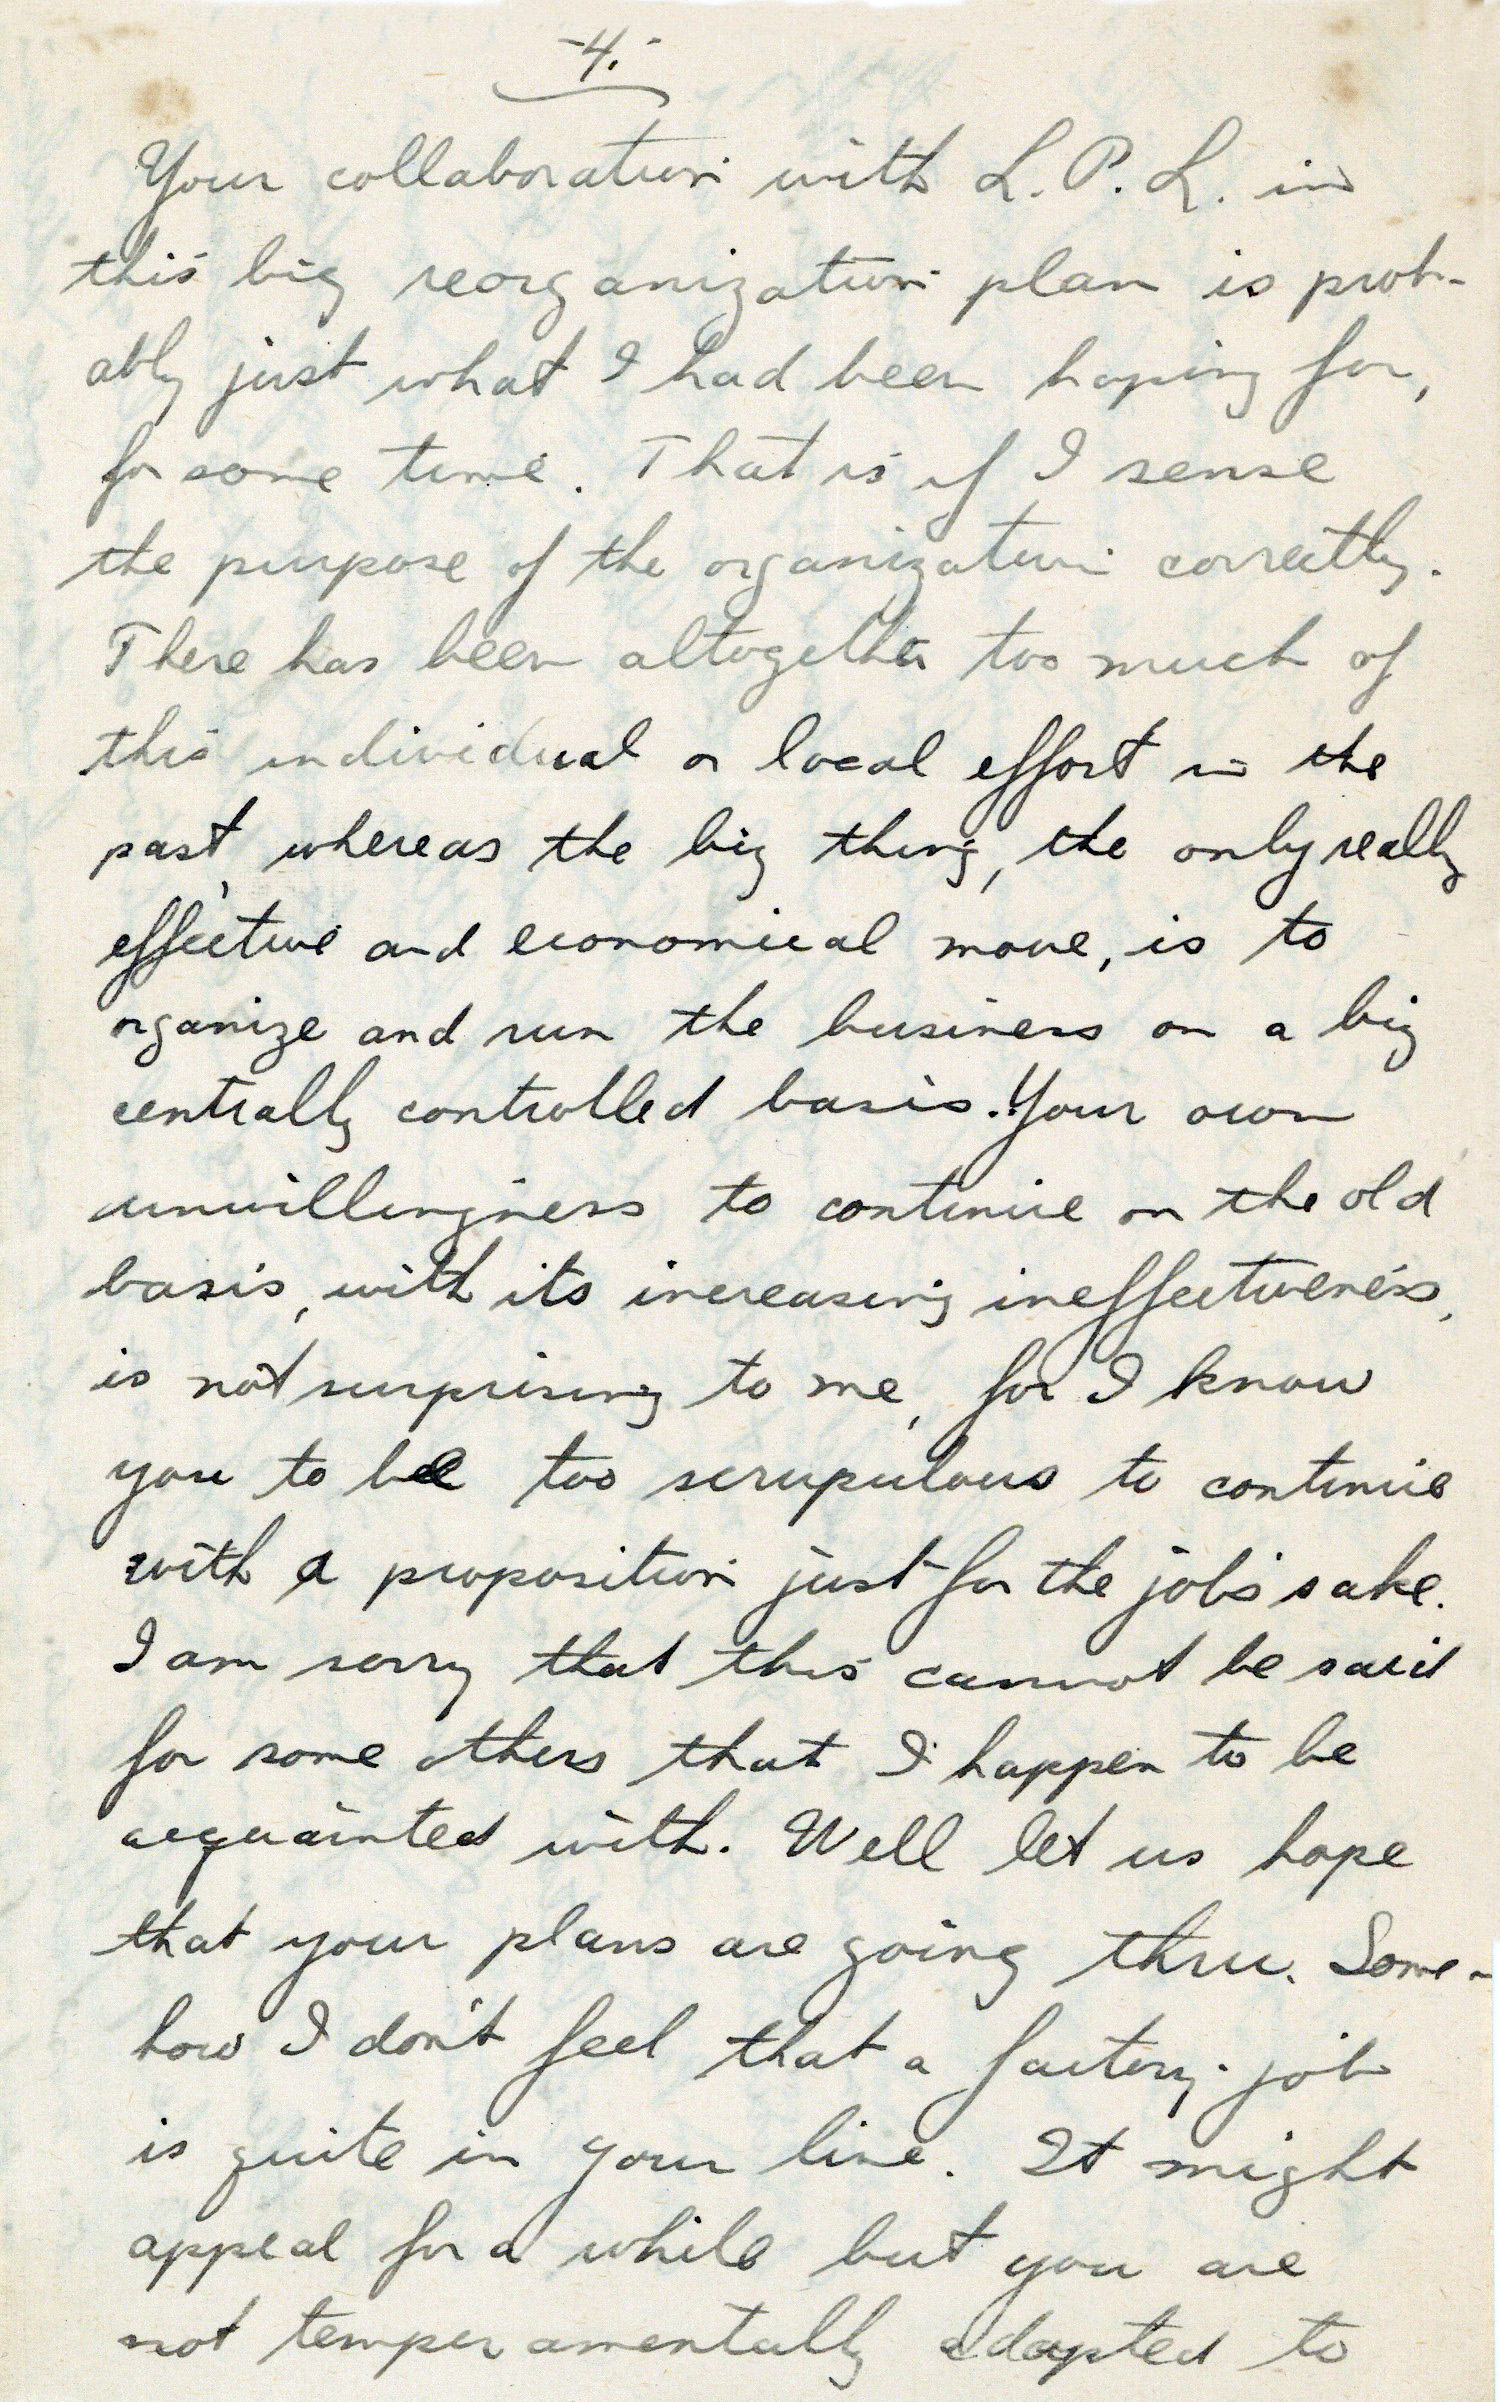 -4.-
Your collaboration with L. P. L. in
this big reorganization plan is prob-
ably just what I had been hoping for,
for some time. That is if I sense
the purpose of the organization correctly.
There has been altogether too much of
this individual or local effort in the
past, whereas the big thing, the only really
effective and economical move, is to
organize and run the business on a big
centrally controlled basis. Your own
unwillingness to continue on the old
basis, with its increasing ineffectiveness,
is not surprising to me, for I know
you to be too scrupulous to continue
with a proposition just for the job's sake.
I am sorry that this cannot be said
for some others that I happen to be
acquainted with. Well let us hope
that your plans are going thru. Some-
how I don't feel that a factory job
is quite in your line. It might
appeal for a while but you are
not temperamentally adapted to